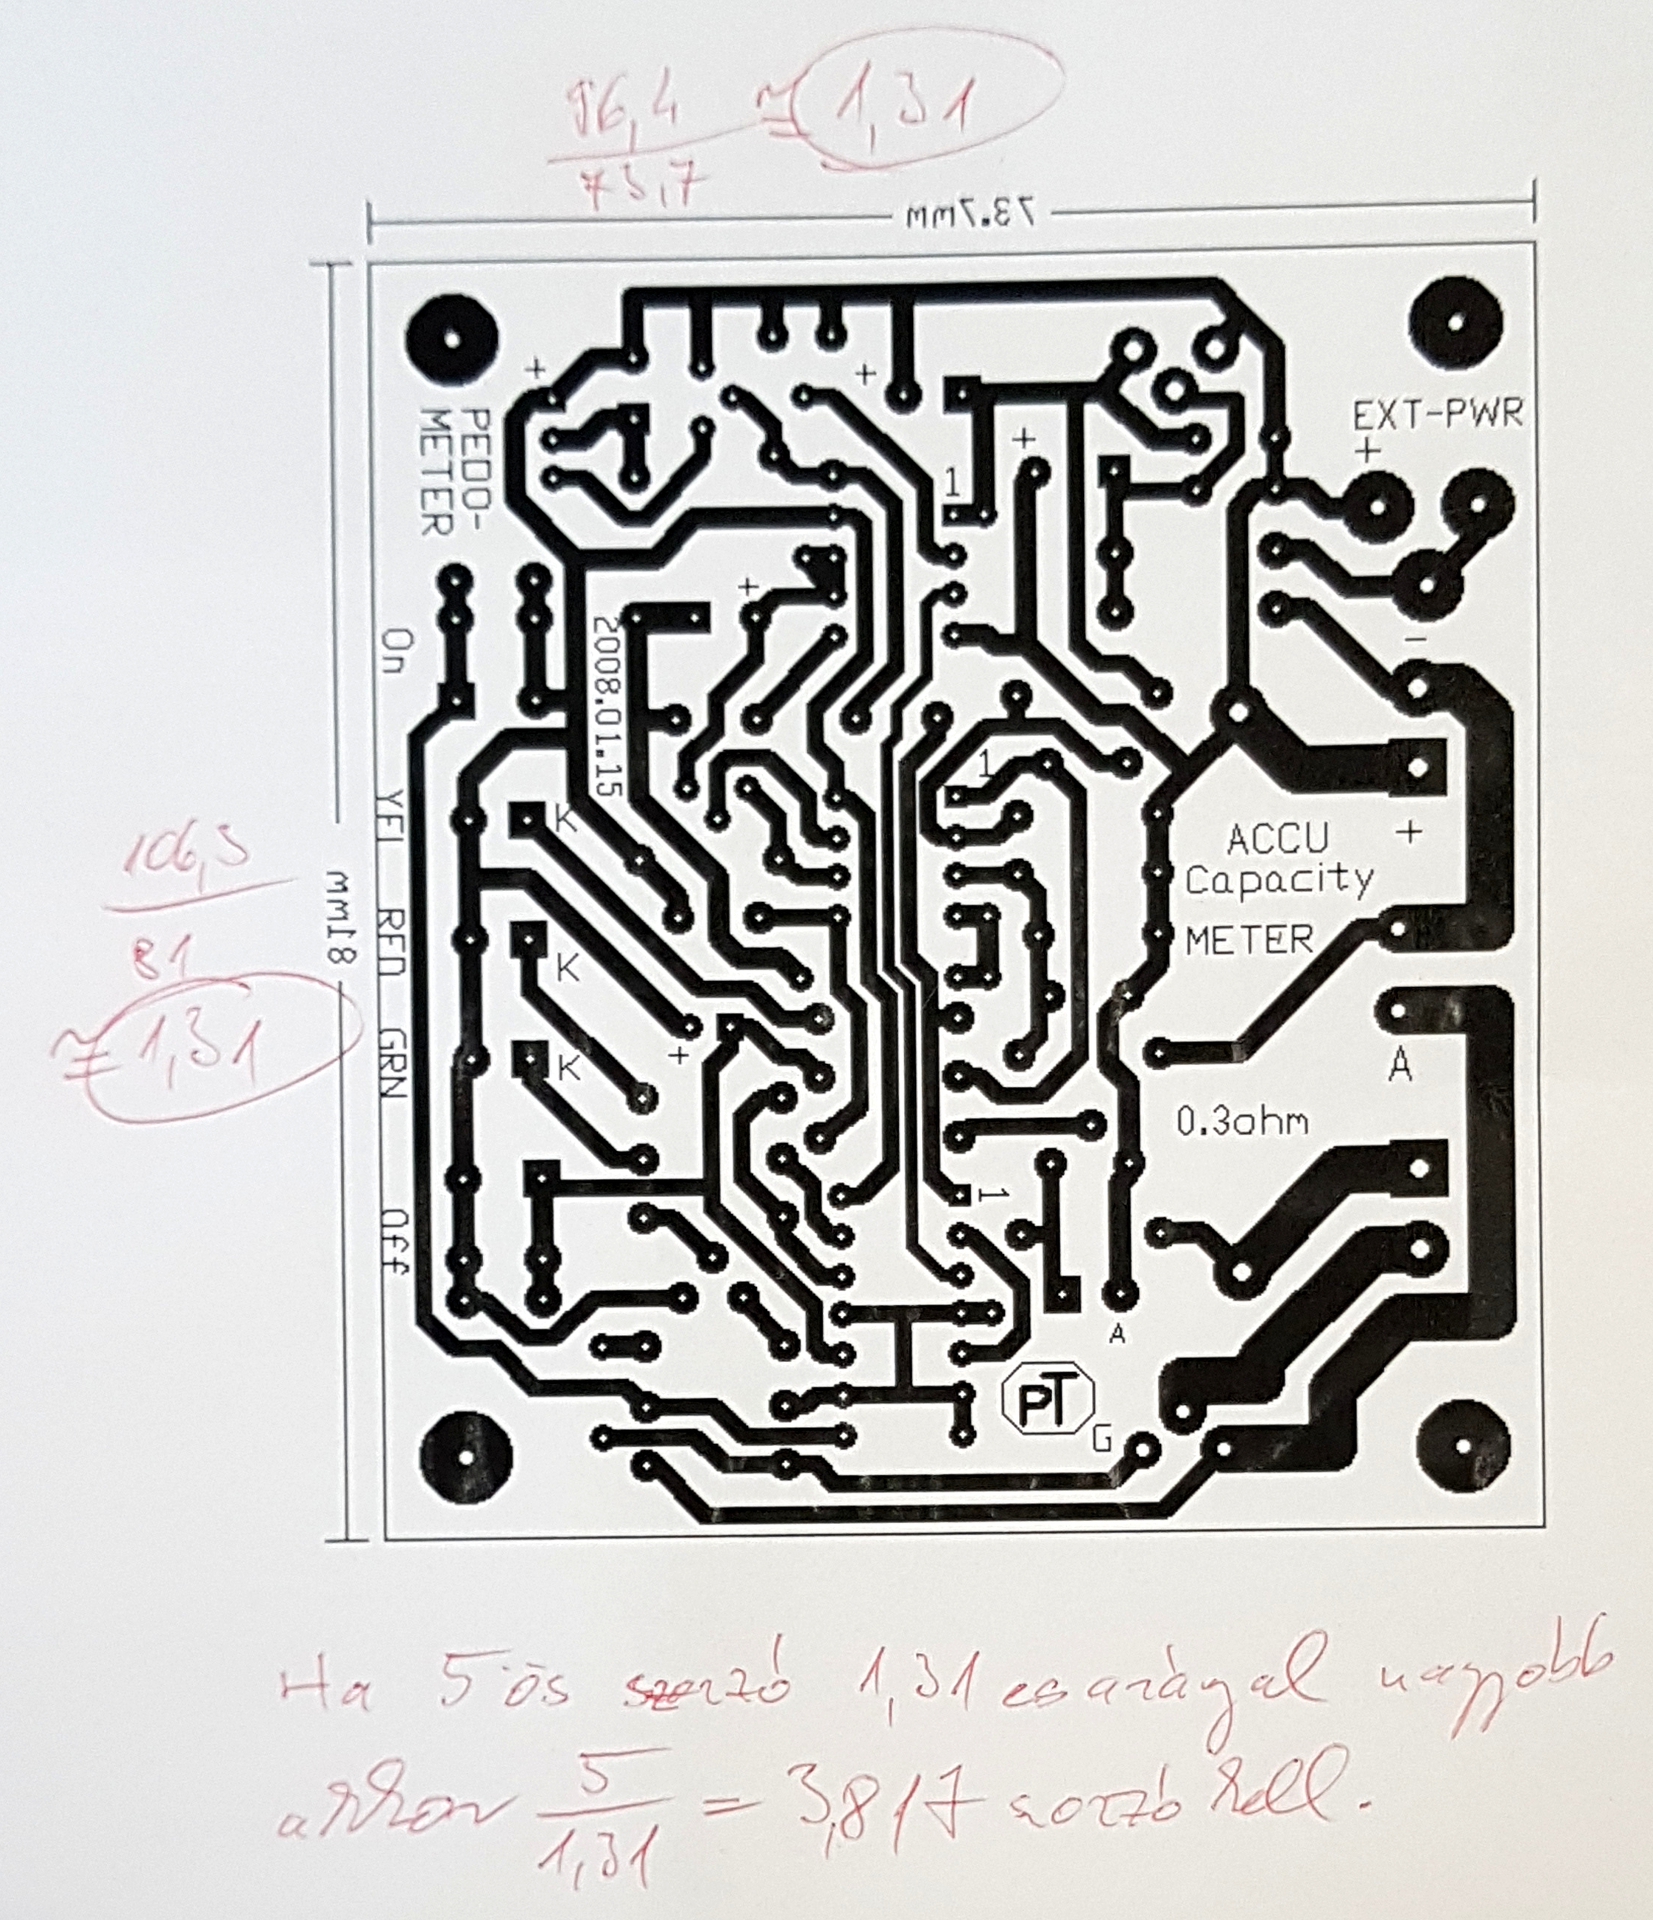 96,4
73,7
≈ 1,31
73.7mm
+
+
PEDO-
METER
EXT-PWR
+
+
1
+
-
On
2008.01.15
1
YEL
K
ACCU
Capacity
METER
+
106,3
81
≈ 1,31
81mm
RED
K
GRN
K
+
A
0.3ohm
1
Off
A
PT
G
Ha 5-ös szorzó 1,31-es arágyal nagyobb
akkor 5
1,31
= 3,817 szorzó kell.